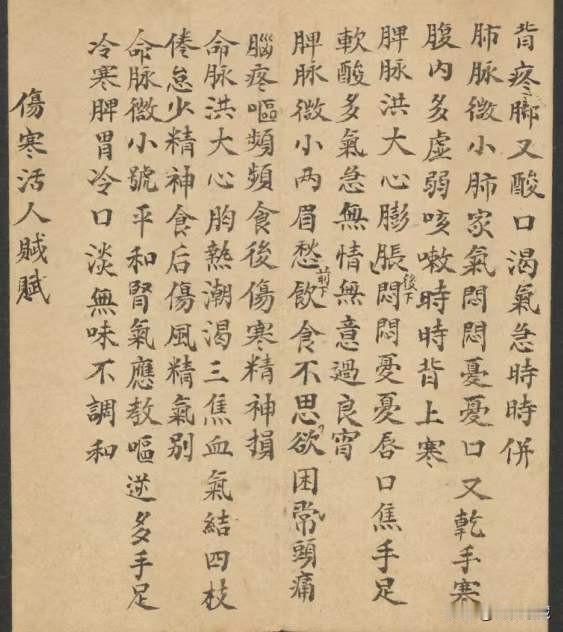 背疼脚又酸口渴氣急時時併
肺脉微小肺家氣悶悶憂憂口又乾手寒
腹內多虛弱咳嗽時時背上寒
脾脉洪大心膨脹悶悶後下憂憂唇口焦手足
軟酸多氣急無情無意過良宵
脾脉微小两眉愁前下飲食不思欲困常頭痛
腦疼嘔頻頻食後傷寒精神損
命脉洪大心胸熱潮渴三焦血氣結四枝
倦怠少精神食后傷風精氣別
命脉微小號平和腎氣應教嘔逆多手足
冷寒脾胃冷口淡無味不調和
傷寒活人賊賦